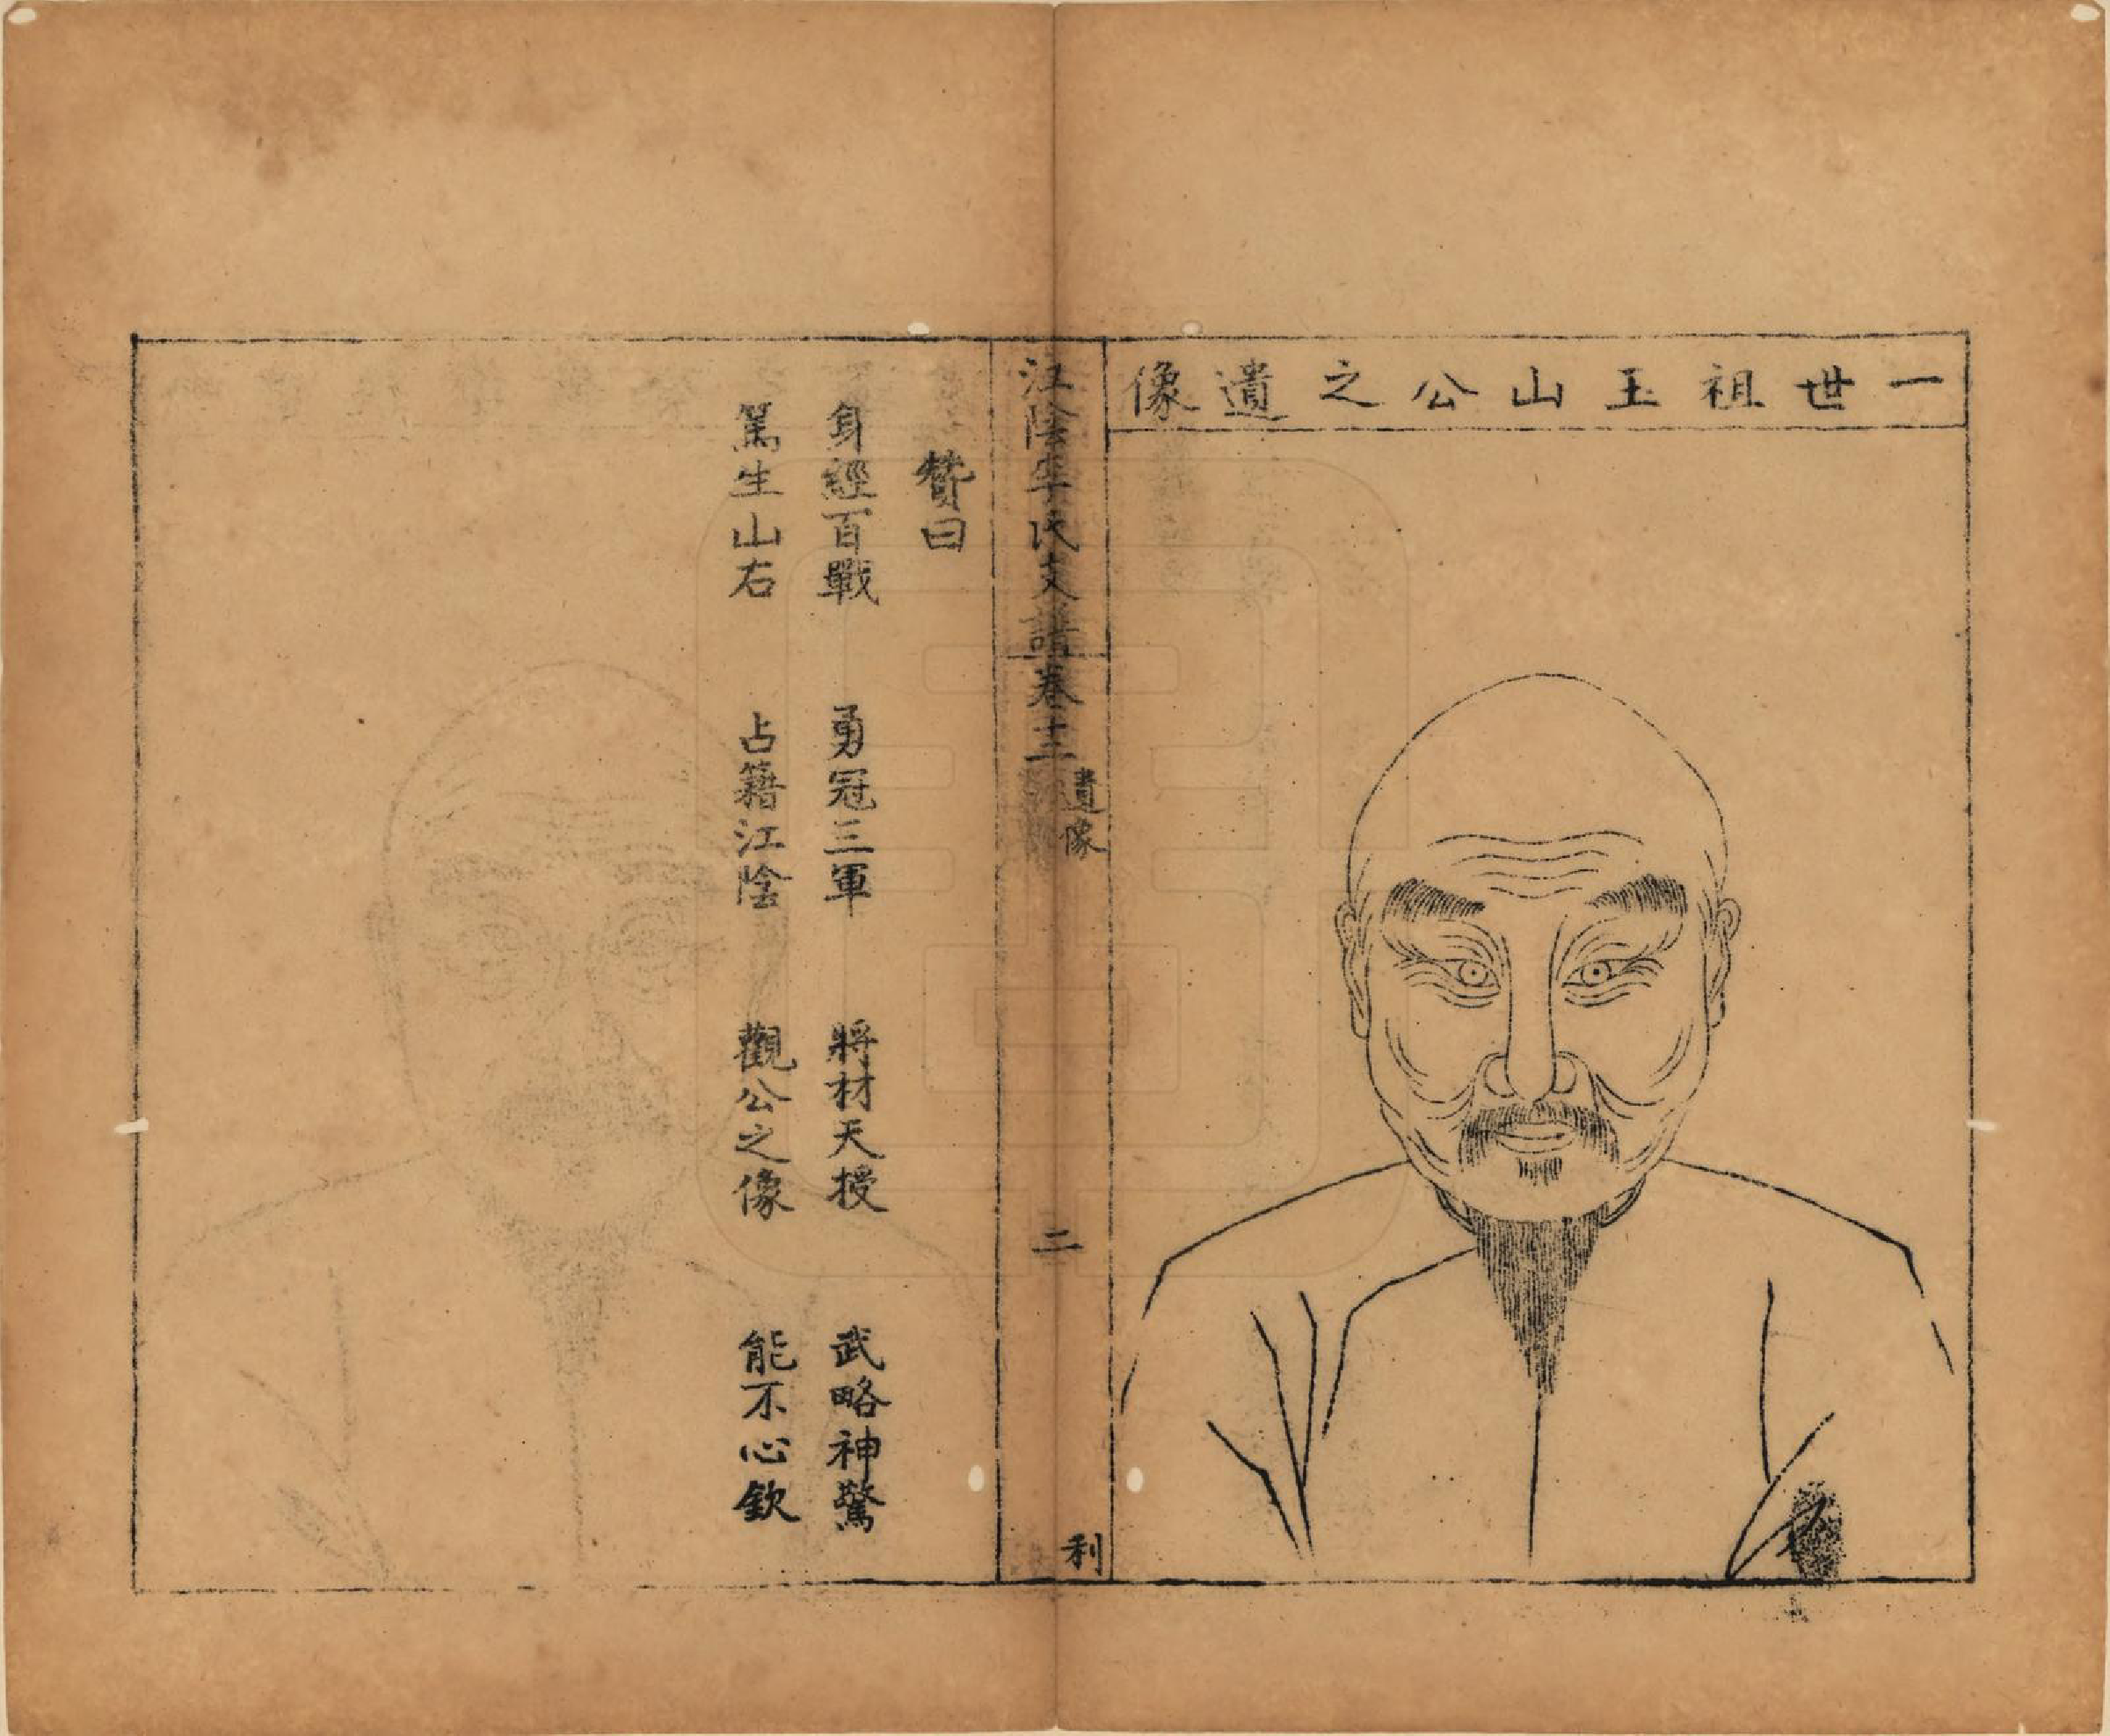 一世祖玉山公之遺像
江陰李氏支譜卷十三
遺像
二
利
贊曰
身經百戰 勇冠三軍 將材天授 武略神驚
篤生山右 占籍江陰 觀公之像 能不心欽